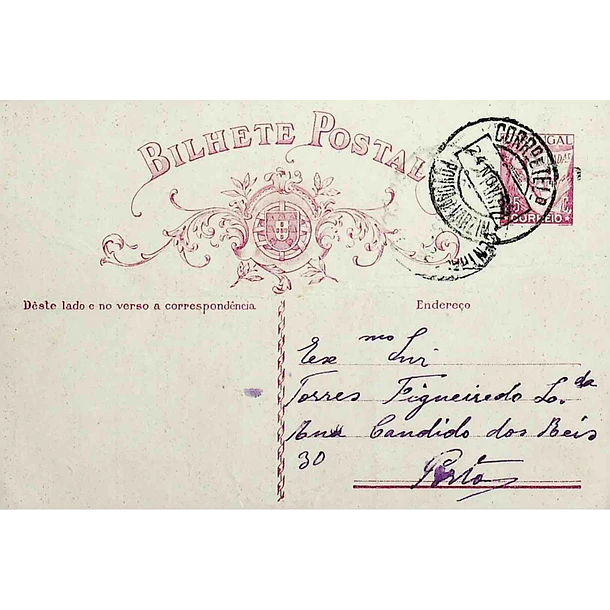 BILHETE POSTAL
CORREIO
Dêste lado e no verso a correspondência
Endereço
Ex mo Snr
Torres Figueiredo L.da
Rua Candido dos Reis
30 Porto